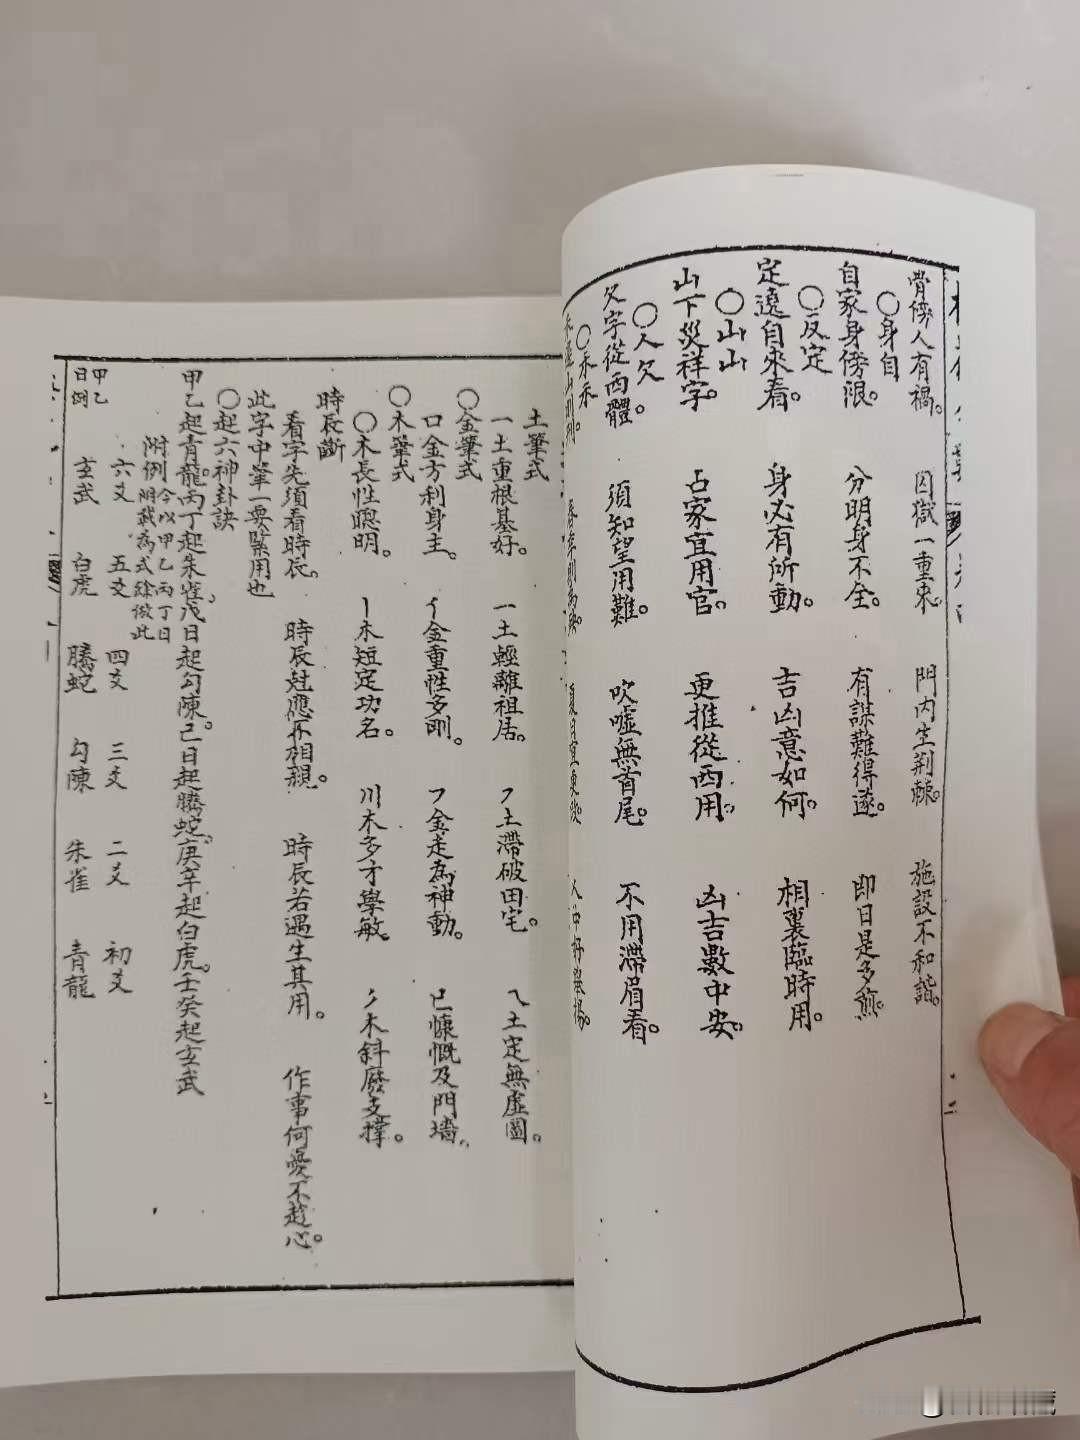 骨傍人有禍。 囚獄一重來。 門内生荆棘。 施設不和諧。
○身自
自家身傍限。 分明身不全。 有謀難得遂。 即日是多煎。
○反定
定邊自來看。 身必有所動。 吉凶意如何。 相裏臨時用。
○山山
山下災祥字。 占家宜用官。 更推從西用。 凶吉數中安。
○人欠
欠字從西體。 須知望用難。 吹噓無首尾。 不用滯眉看。
○禾禾
土筆式
一土重根基好。 一土輕離祖居。 ㇇土滯破田宅。 乀土定無虛圖。
○金筆式
口金方利身主。 亻金重性多剛。 ㇇金走為神動。 已慷慨及門墻。
○木筆式
○木長性聰明。 丨木短定功名。 川木多才學敏。 丿木斜廢支撐。
時辰斷
看字先須看時辰。 時辰尅應不相親。 時辰若遇生其用。 作事何憂不趁心。
此字中筆一要緊用也
○起六神卦訣
甲乙起青龍。丙丁起朱雀。戊日起勾陳。己日起螣蛇。庚辛起白虎。壬癸起玄武
附例今以甲乙丙丁日
附載為式餘倣此
甲乙 六爻 五爻 四爻 三爻 二爻 初爻
日例 玄武 白虎 螣蛇 勾陳 朱雀 青龍